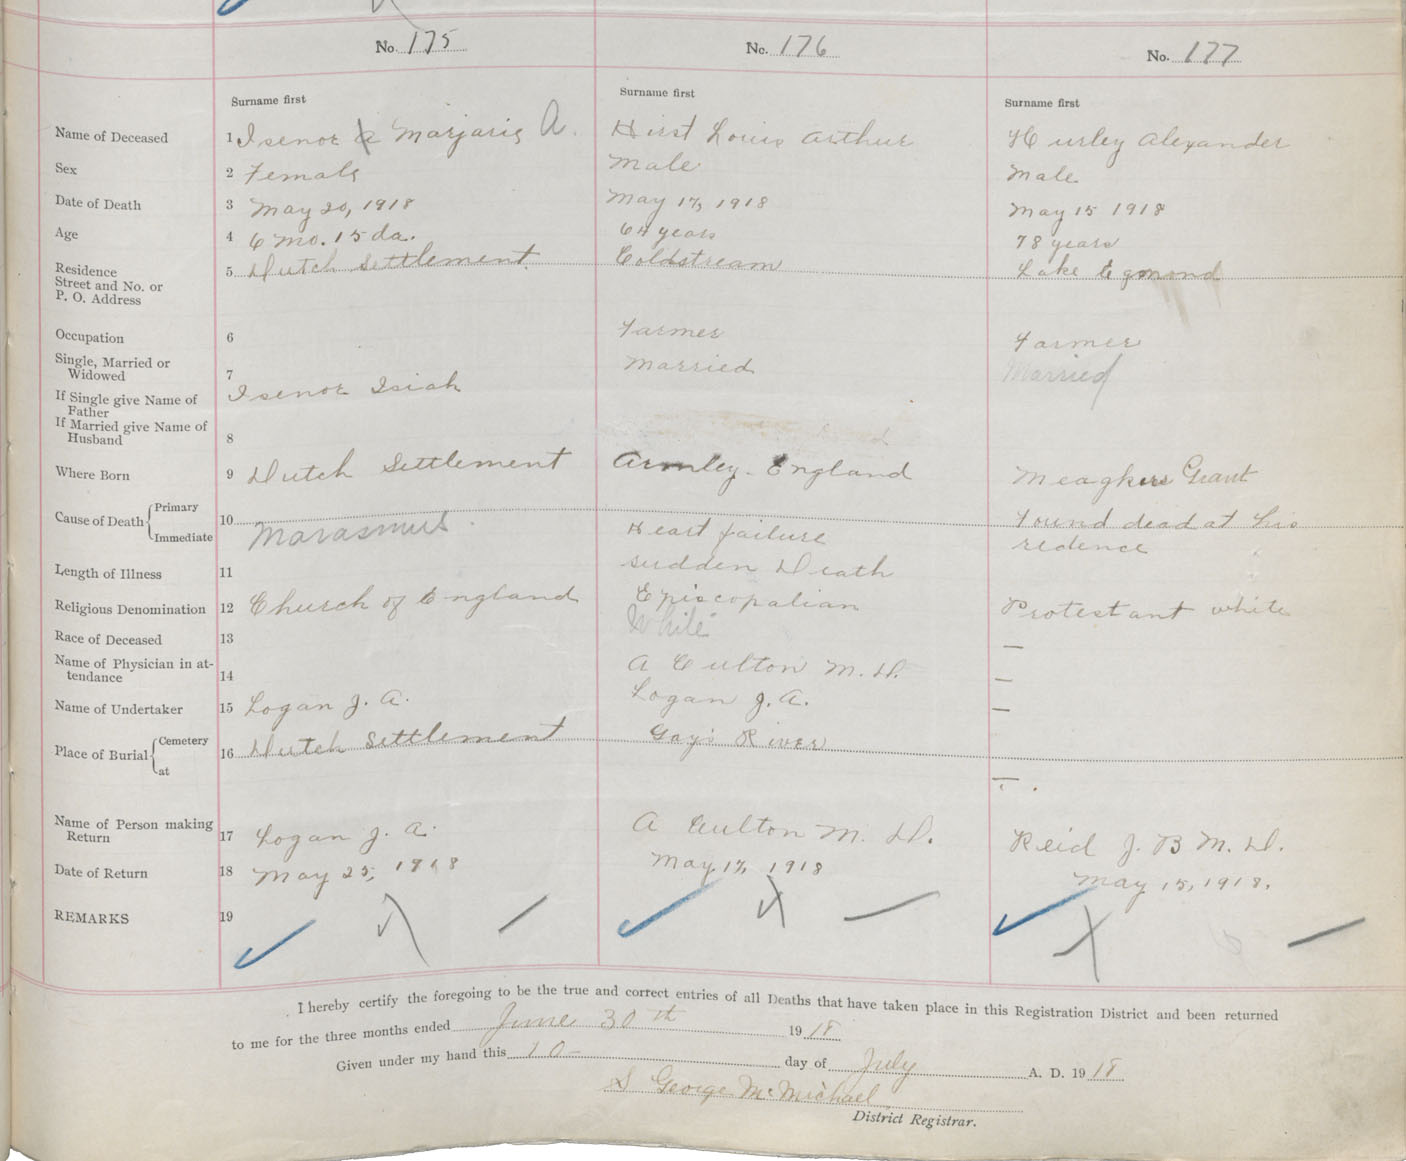 No. 175 No. 176 No. 177
Surname first Surname first Surname first
Name of Deceased 1 Isenor Marjarie A. Hirst Louis Arthur Hurley Alexander
Sex 2 Female Male Male
Date of Death 3 May 20, 1918 May 17, 1918 May 15 1918
Age 4 6 mo. 15 da. 64 years 78 years
Residence Street and No. or P. O. Address 5 Dutch Settlement Coldstream Lake Egmond
Occupation 6 Farmer Farmer
Single, Married or Widowed 7 Married Married
If Single give Name of Father Isenor Isiah
If Married give Name of Husband 8
Where Born 9 Dutch Settlement Armley England Meaghers Grant
Cause of Death Primary Immediate 10 Marasmus Heart failure Found dead at his
redence
Length of Illness 11 sudden Death
Religious Denomination 12 Church of England Episcopalian Protestant white
Race of Deceased 13 White —
Name of Physician in attendance 14 A Culton M. D. —
Name of Undertaker 15 Logan J. A. Logan J. A. —
Place of Burial Cemetery at 16 Dutch Settlement Gay's River —
Name of Person making Return 17 Logan J. A. A Culton M. D. Reid J. B M. D.
Date of Return 18 May 25, 1918 May 17, 1918 May 15, 1918.
REMARKS 19
I hereby certify the foregoing to be the true and correct entries of all Deaths that have taken place in this Registration District and been returned
to me for the three months ended June 30th 1918
Given under my hand this 10 day of July A. D. 1918
S George McMichael
District Registrar.